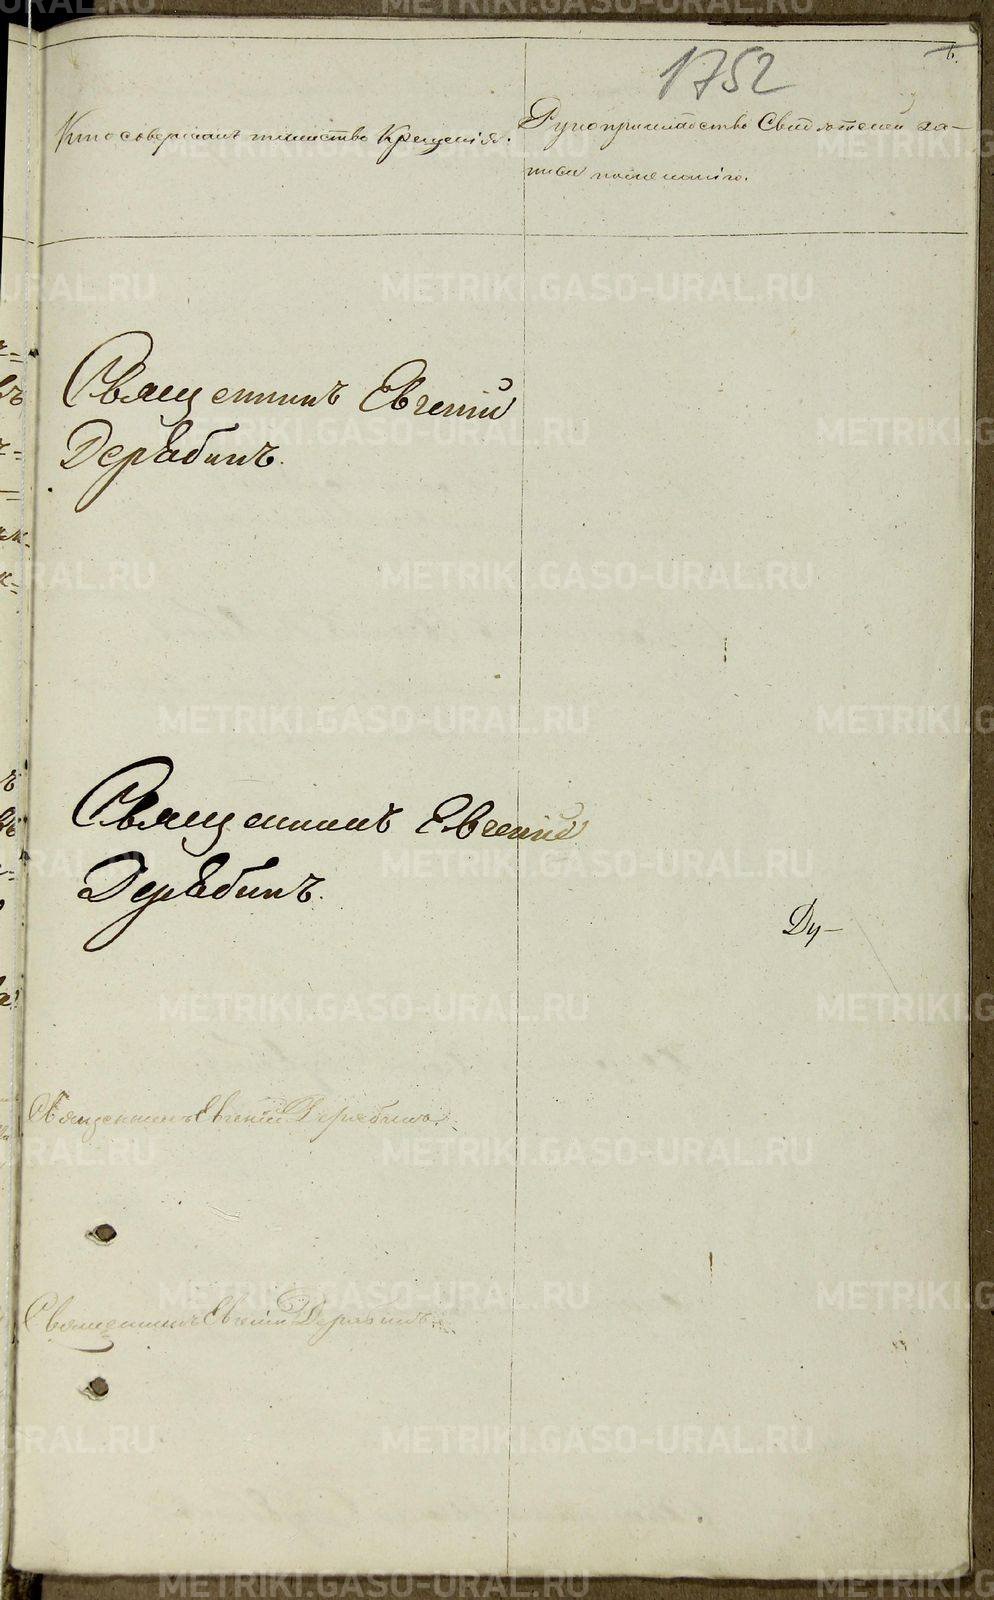 1752
6.
Кто совершалъ таинство Крещенія.
Рукоприкладство Свидѣтелей за-
писи по желанію.
Священникъ Евгеній
Дерябинъ.
Священникъ Евгеній
Дерябинъ.
Ду-
Священникъ Евгеній Дерябинъ.
Священникъ Евгеній Дерябинъ.
METRIKI.GASO-URAL.RU